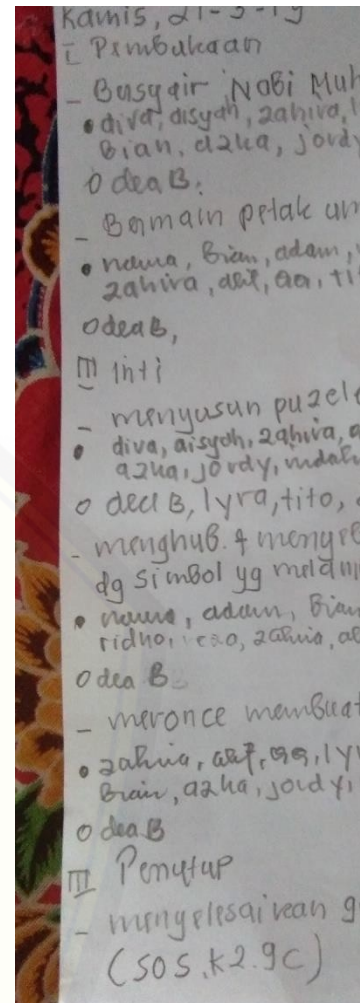 Kamis, 21-3-19
I Pembukaan
- Basyair Nabi Muh
• diva, disyah, zahira,
Bian, azka, jordy
O dea B.
- Bermain petak um
• naura, Brian, adam,
zahira, alif, ti
O dea B,
III inti
- menyusun puzele
• diva, aisyah, zahira, a
azka, jordy, indah
O dea B, lyra, tito,
- menghub. & menye
dg simbol yg mela
• adam, Bian
ridho, zahira, al
O dea B
- meronce membuat
• zahira, alif, lyr
Brain, azka, jordy,
O dea B
III Penutup
- menyelesaikan g
(SOS, K2.9C)